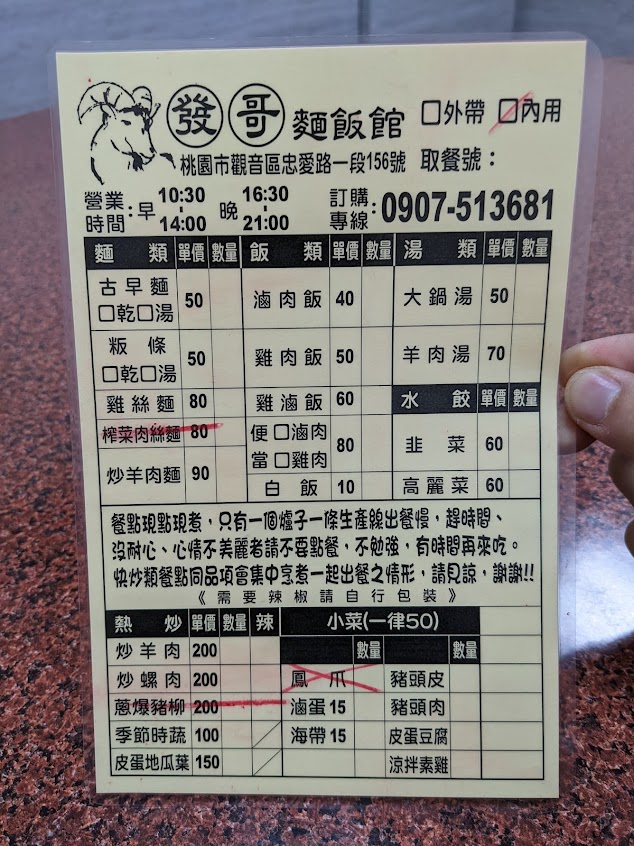 發哥 麵飯館 □外帶 □內用
桃園市觀音區忠愛路一段156號 取餐號：
營業時間：早 10:30-14:00 晚 16:30-21:00 訂購專線：0907-513681
麵類 單價 數量 飯類 單價 數量 湯類 單價 數量
古早麵 □乾□湯 50 滷肉飯 40 大鍋湯 50
粄條 □乾□湯 50 雞肉飯 50 羊肉湯 70
雞絲麵 80 雞滷飯 60 水餃 單價 數量
榨菜肉絲麵 80 便當 □滷肉 □雞肉 80 韭菜 60
炒羊肉麵 90 白飯 10 高麗菜 60
餐點現點現煮，只有一個爐子一條生產線出餐慢，趕時間、
沒耐心、心情不美麗者請不要點餐，不勉強，有時間再來吃。
快炒類餐點同品項會集中烹煮一起出餐之情形，請見諒，謝謝!!
《需要辣椒請自行包裝》
熱炒 單價 數量 辣 小菜(一律50)
炒羊肉 200 數量 數量
炒螺肉 200 鳳爪 豬頭皮
蔥爆豬柳 200 滷蛋15 豬頭肉
季節時蔬 100 海帶15 皮蛋豆腐
皮蛋地瓜葉 150 涼拌素雞